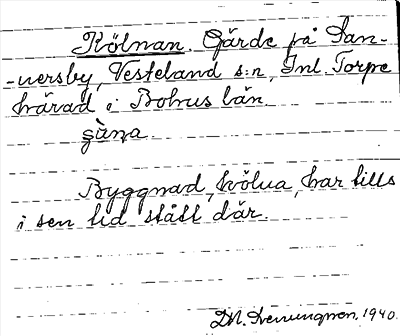 Kölnan. Gärde på San-
-nersby, Vesteland s:n, Inl. Torpe
härad i Bohus län.
Byggnad, kölna, har tills
i sen tid stått där.
1940.